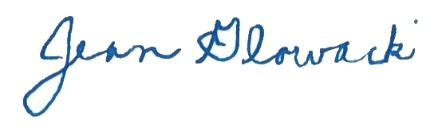 Jean Glowacki